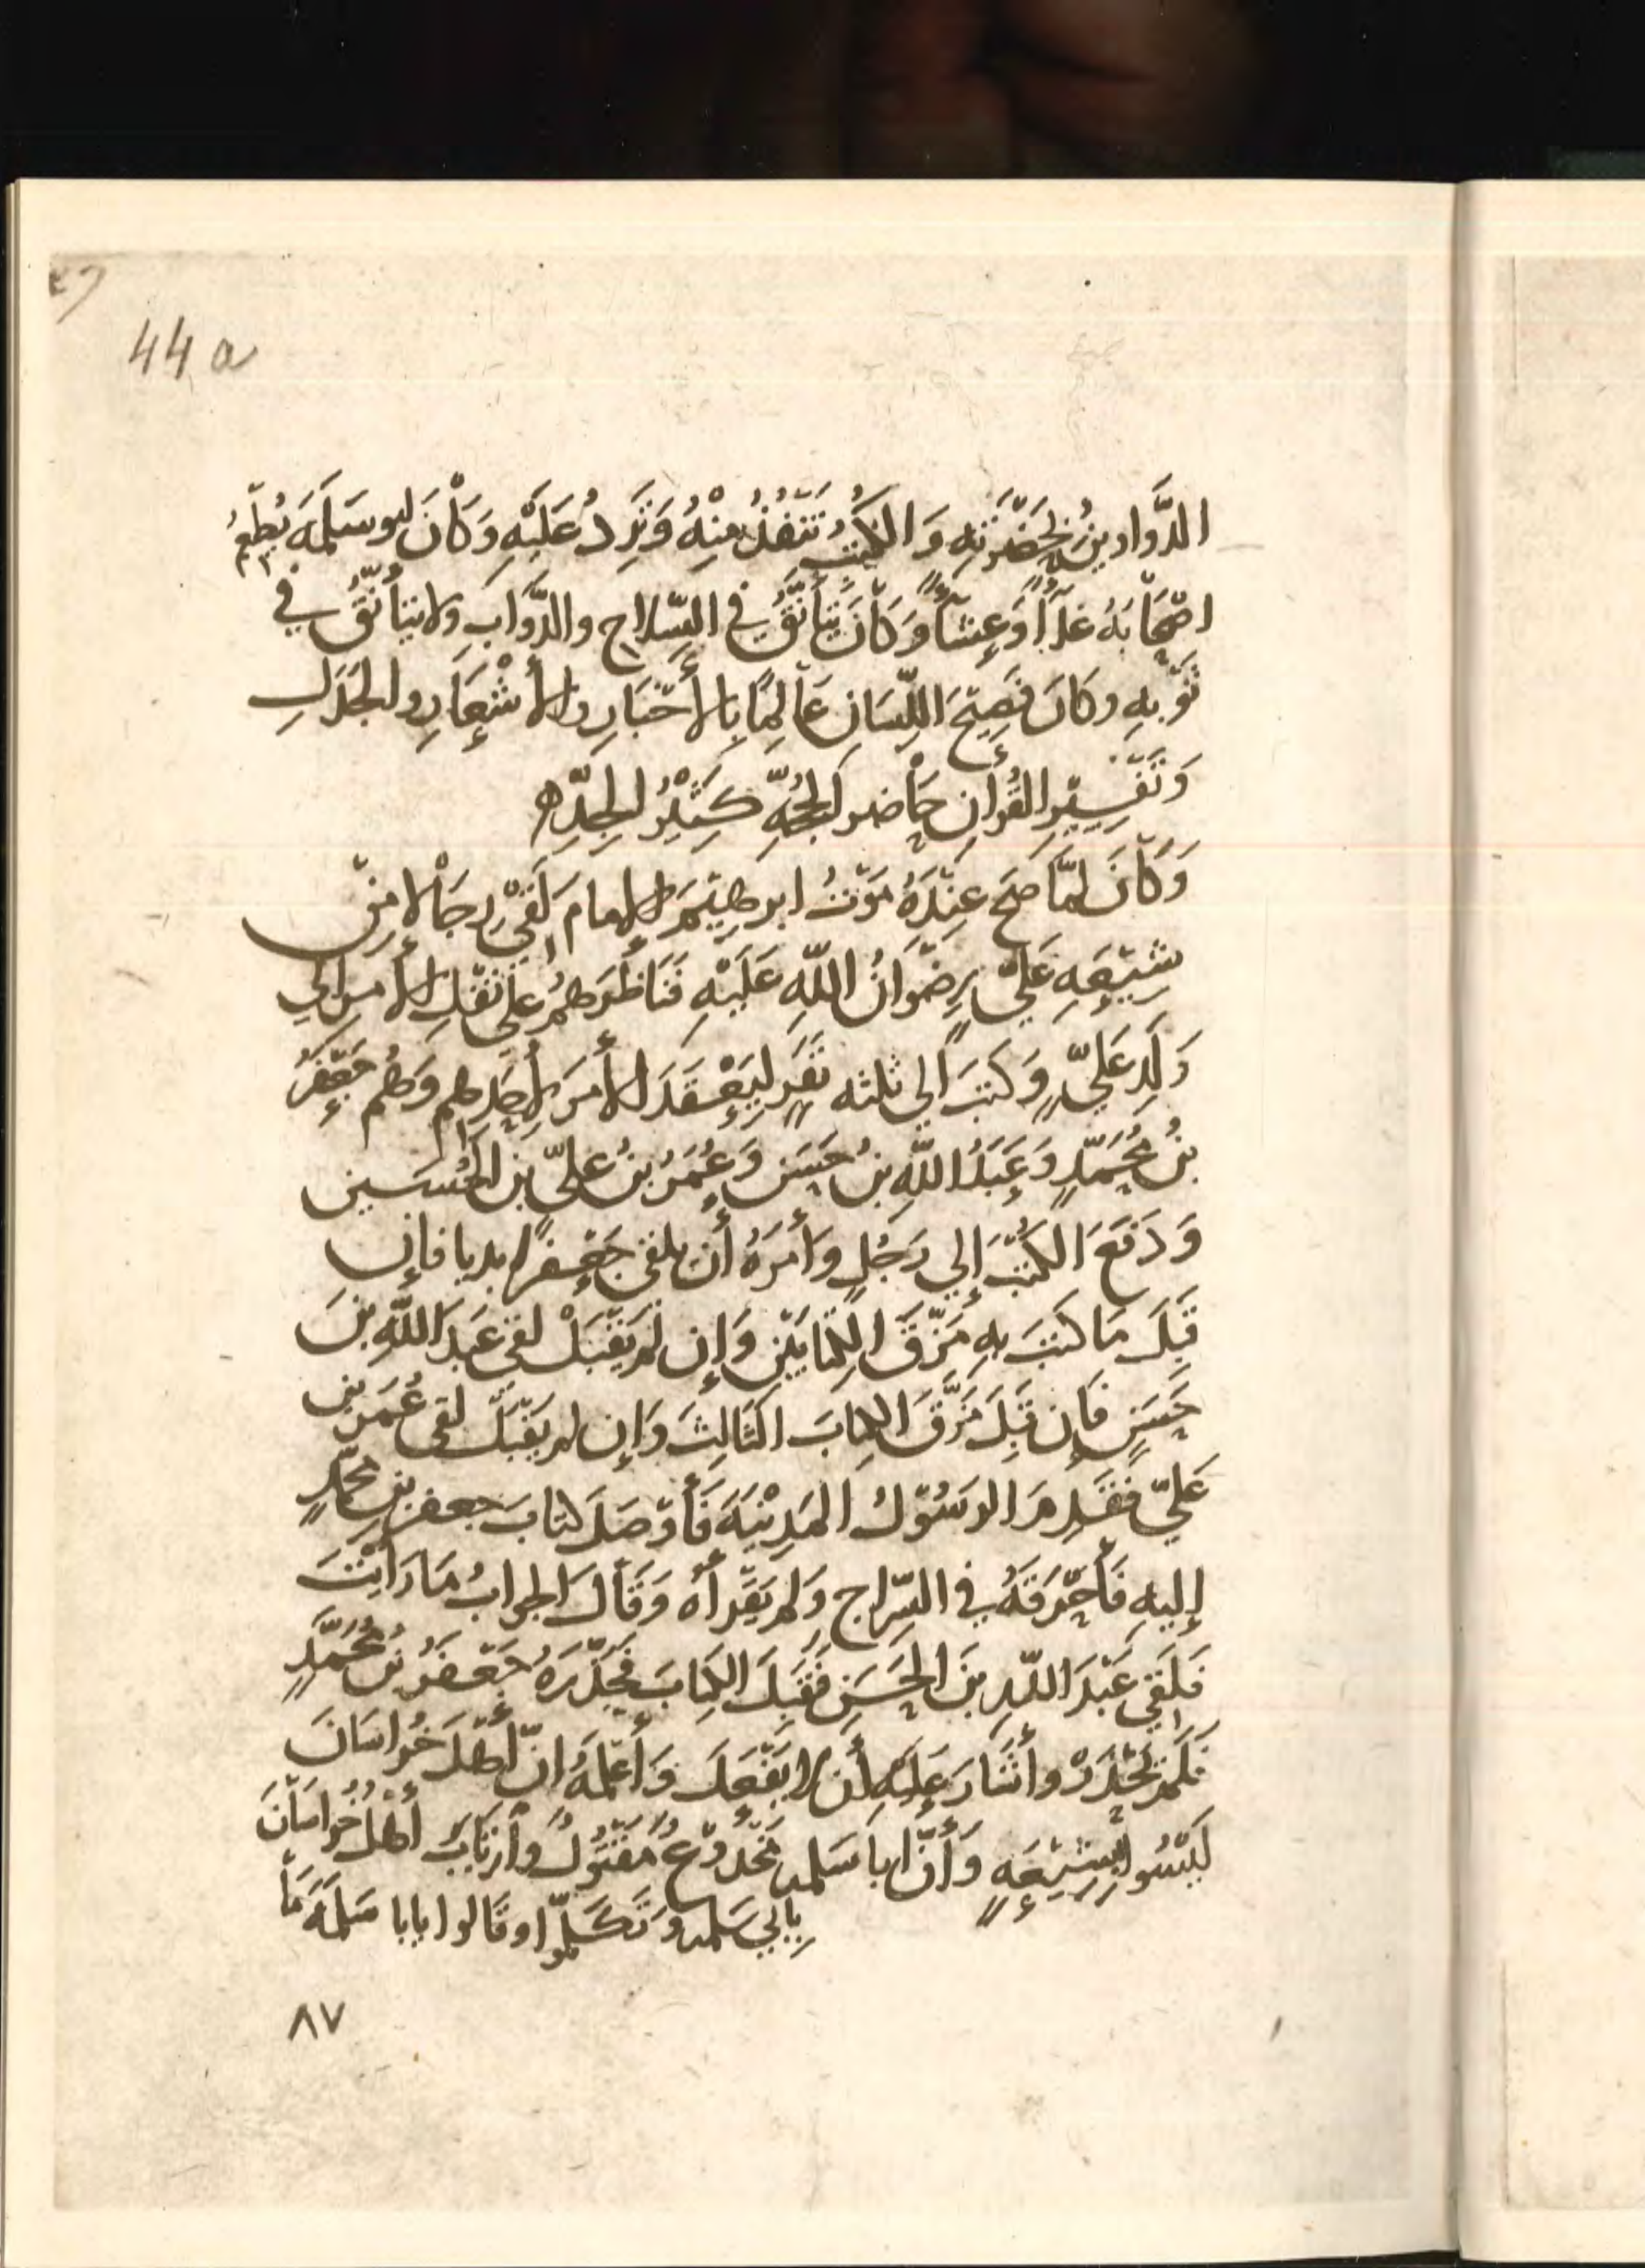 44 a
الدَّوادينُ بحَضْرَتِهِ وَالكُتُبُ تَنْفُذُ مِنْهُ وَتَرِدُ عَلَيْهِ وَكَانَ ابو سَلَمَهَ يُطْعِمُ
اصْحَابَهُ غَدَآءً وَعِشَآءً وَكَانَ يَتَأَنَّقُ في السِّلاحِ والدَّوَابِ ولا يتأنَّقُ في
ثَوْبِهِ وكَانَ فَصِيْحَ اللِّسَانِ عَالِمًا بِالأَخْبَارِ والأَشْعَارِ والجَدَلِ
وَتَفْسِيْرِ القُرْأن حَاضر الحُجَّهِ كَثِيْرُ الجِدِّ ه
وَكَانَ لَمَّا صَحَ عِنْدَهُ مَوْتُ ابرهِيْمَ الإمام لَقِيَ رِجَالا مِنْ
شِيْعَهِ عَليّ رِضْوَانُ اللَّهِ عَلَيْهِ فَنَاظَرَهُمْ عَلى نَقْلِ الأمر الي
وَلَدِ عَليٍّ وَكَتَبَ الي ثلثه نَفَرٍ لِيَعْقدَ الأمرَ لأحَدِهِم وَهُم جَعْفَرُ
بنُ مُحَمَّدٍ وَعَبْدُ اللَّهِ بنُ حَسَن وَعُمَرُ بنُ عليّ بن الحُسَين
وَدَفَعَ الكُتُبَ إلي رَجُلٍ وأمَرَهُ أن يلقى جَعْفَرًا بديا فإن
قَبِلَ مَا كَتَبَ بهِ مَزَّقَ الكِتَابَيْنِ وَإن لم يَقْبَلْ لقي عَبدَ اللَّهِ بنَ
حَسَنٍ فَإن قَبِلَ مَزَّقَ الكِتابَ الثَالِثَ وَإن لم يَقْبَل لقى عُمَرَ بن
عَليّ فقَدِمَ الرسُوْلُ المَدِيْنَهَ فَأوْصَلَ كتابَ جعفر بن محمّدٍ
إليهِ فَأحْرَقَهُ في السِّراجِ وَلم يَقْرَأه وَقَالَ الجوابُ مَا رَايْتَ
فلَقِيَ عَبْدَ اللّهِ بنَ الحَسَنِ فَقَبِلَ الكِتَابَ فَحَذَّرَهُ جَعْفَرُ بنُ مُحَمَّدٍ
فلَمْ يَحْذَرْ وأشَارَ عَلَيْهِ أن لا يَفْعَلَ وَأعْلَمَهُ انّ أهْلَ خُراسَانَ
لَيْسُوا بشِيْعَهٍ وَأنَّ ابا سَلمه مَخْدُوْعٌ مَقْتُوْلٌ وأرْتَابَ أهْلُ خُراسَانَ
بِأبي سَلمه وَتَكَلَّمُوْا وقَالوا يابا سَلَمَهَ مَا
٨٧